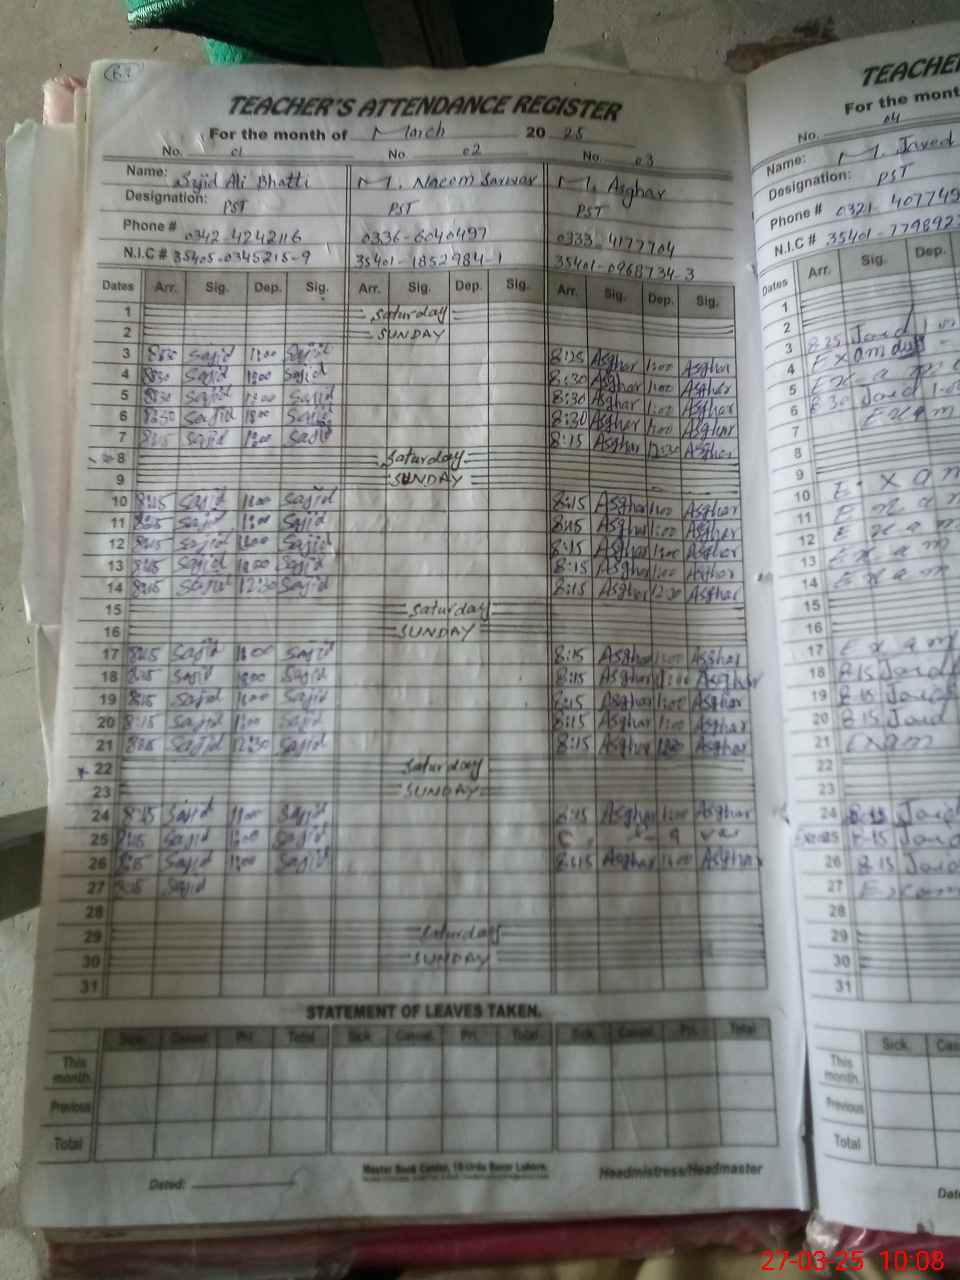 B2
TEACHER'S ATTENDANCE REGISTER
For the month of March 2025
No. 01 No. 02 No. 03
Name: Sajid Ali Bhatti M. Naeem Sarwar M. Asghar
Designation: PST PST PST
Phone # 0342-4242116 0336-6040497 0333-4177704
N.I.C # 35405-0345215-9 35401-1852984-1 35401-0968734-3
Dates Arr. Sig. Dep. Sig. Arr. Sig. Dep. Sig. Arr. Sig. Dep. Sig.
1 Saturday
2 SUNDAY
3 Sajid 1:00 Sajid 8:25 Asghar 1:00 Asghar
4 8:30 Sajid 1:00 Sajid 8:30 Asghar 1:00 Asghar
5 8:30 Sajid 1:00 Sajid 8:30 Asghar 1:00 Asghar
6 8:30 Sajid 1:00 Sajid 8:30 Asghar 1:00 Asghar
7 8:15 Sajid 1:00 Sajid 8:15 Asghar 12:30 Asghar
8 Saturday
9 SUNDAY
10 8:15 Sajid 1:00 Sajid 8:15 Asghar 1:00 Asghar
11 8:15 Sajid 1:00 Sajid 8:15 Asghar 1:00 Asghar
12 8:15 Sajid 1:00 Sajid 8:15 Asghar 1:00 Asghar
13 8:15 Sajid 1:00 Sajid 8:15 Asghar 1:00 Asghar
14 8:15 Sajid 12:30 Sajid 8:15 Asghar 12:30 Asghar
15 Saturday
16 SUNDAY
17 8:15 Sajid 1:00 Sajid 8:15 Asghar 1:00 Asghar
18 8:15 Sajid 1:00 Sajid 8:15 Asghar 1:00 Asghar
19 8:15 Sajid 1:00 Sajid 8:15 Asghar 1:00 Asghar
20 8:15 Sajid 1:00 Sajid 8:15 Asghar 1:00 Asghar
21 8:15 Sajid 12:30 Sajid 8:15 Asghar Asghar
22 Saturday
23 SUNDAY
24 8:15 Sajid 1:00 Sajid 8:15 Asghar 1:00 Asghar
25 8:15 Sajid 1:00 Sajid
26 8:15 Sajid 1:00 Sajid 8:15 Asghar 1:00 Asghar
27 8:15 Sajid
28
29 Saturday
30 SUNDAY
31
STATEMENT OF LEAVES TAKEN.
Sick. Casual. Pri. Total Sick. Casual. Pri. Total Sick. Casual. Pri. Total
This month
Previous
Total
Master Book Center, 19-Urdu Bazar Lahore.
Dated: Headmistress/Headmaster
TEACHE
For the mont
No. 04
Name: M. Javed
Designation: PST
Phone # 0321-407745
N.I.C # 35401-779892
Dates Arr. Sig. Dep.
1
2
3 8:25 Javed
4 Exam
5 Exam
6 8:30 Javed 1:00
7 Exam
8
9
10 Exam
11 Exam
12 Exam
13 Exam
14 Exam
15
16
17 Exam
18 8:15 Javed
19 8:15 Javed
20 8:15 Javed
21 Exam
22
23
24 8:15 Javed
25 8:15 Javed
26 8:15 Javed
27 Exam
28
29
30
31
Sick. Cas
This month
Previous
Total
Dat
27-03-25 10:08